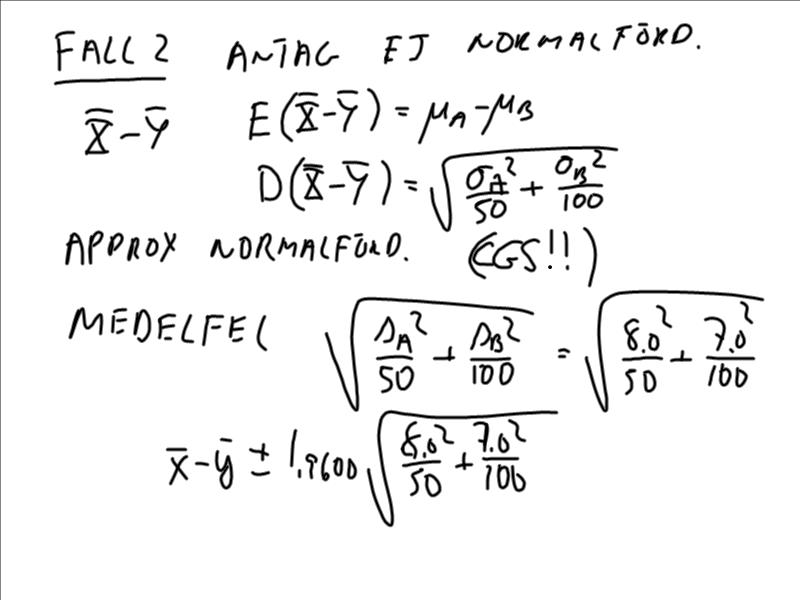 FALL 2 ANTAG EJ NORMALFÖRD.
X̄ - Ȳ E(X̄ - Ȳ) = μA - μB
D(X̄ - Ȳ) = √(σA²/50 + σB²/100)
APPROX NORMALFÖRD. (CGS!!)
MEDELFEL √(sA²/50 + sB²/100) = √(8.0²/50 + 7.0²/100)
x̄ - ȳ ± 1.9600 √(8.0²/50 + 7.0²/100)